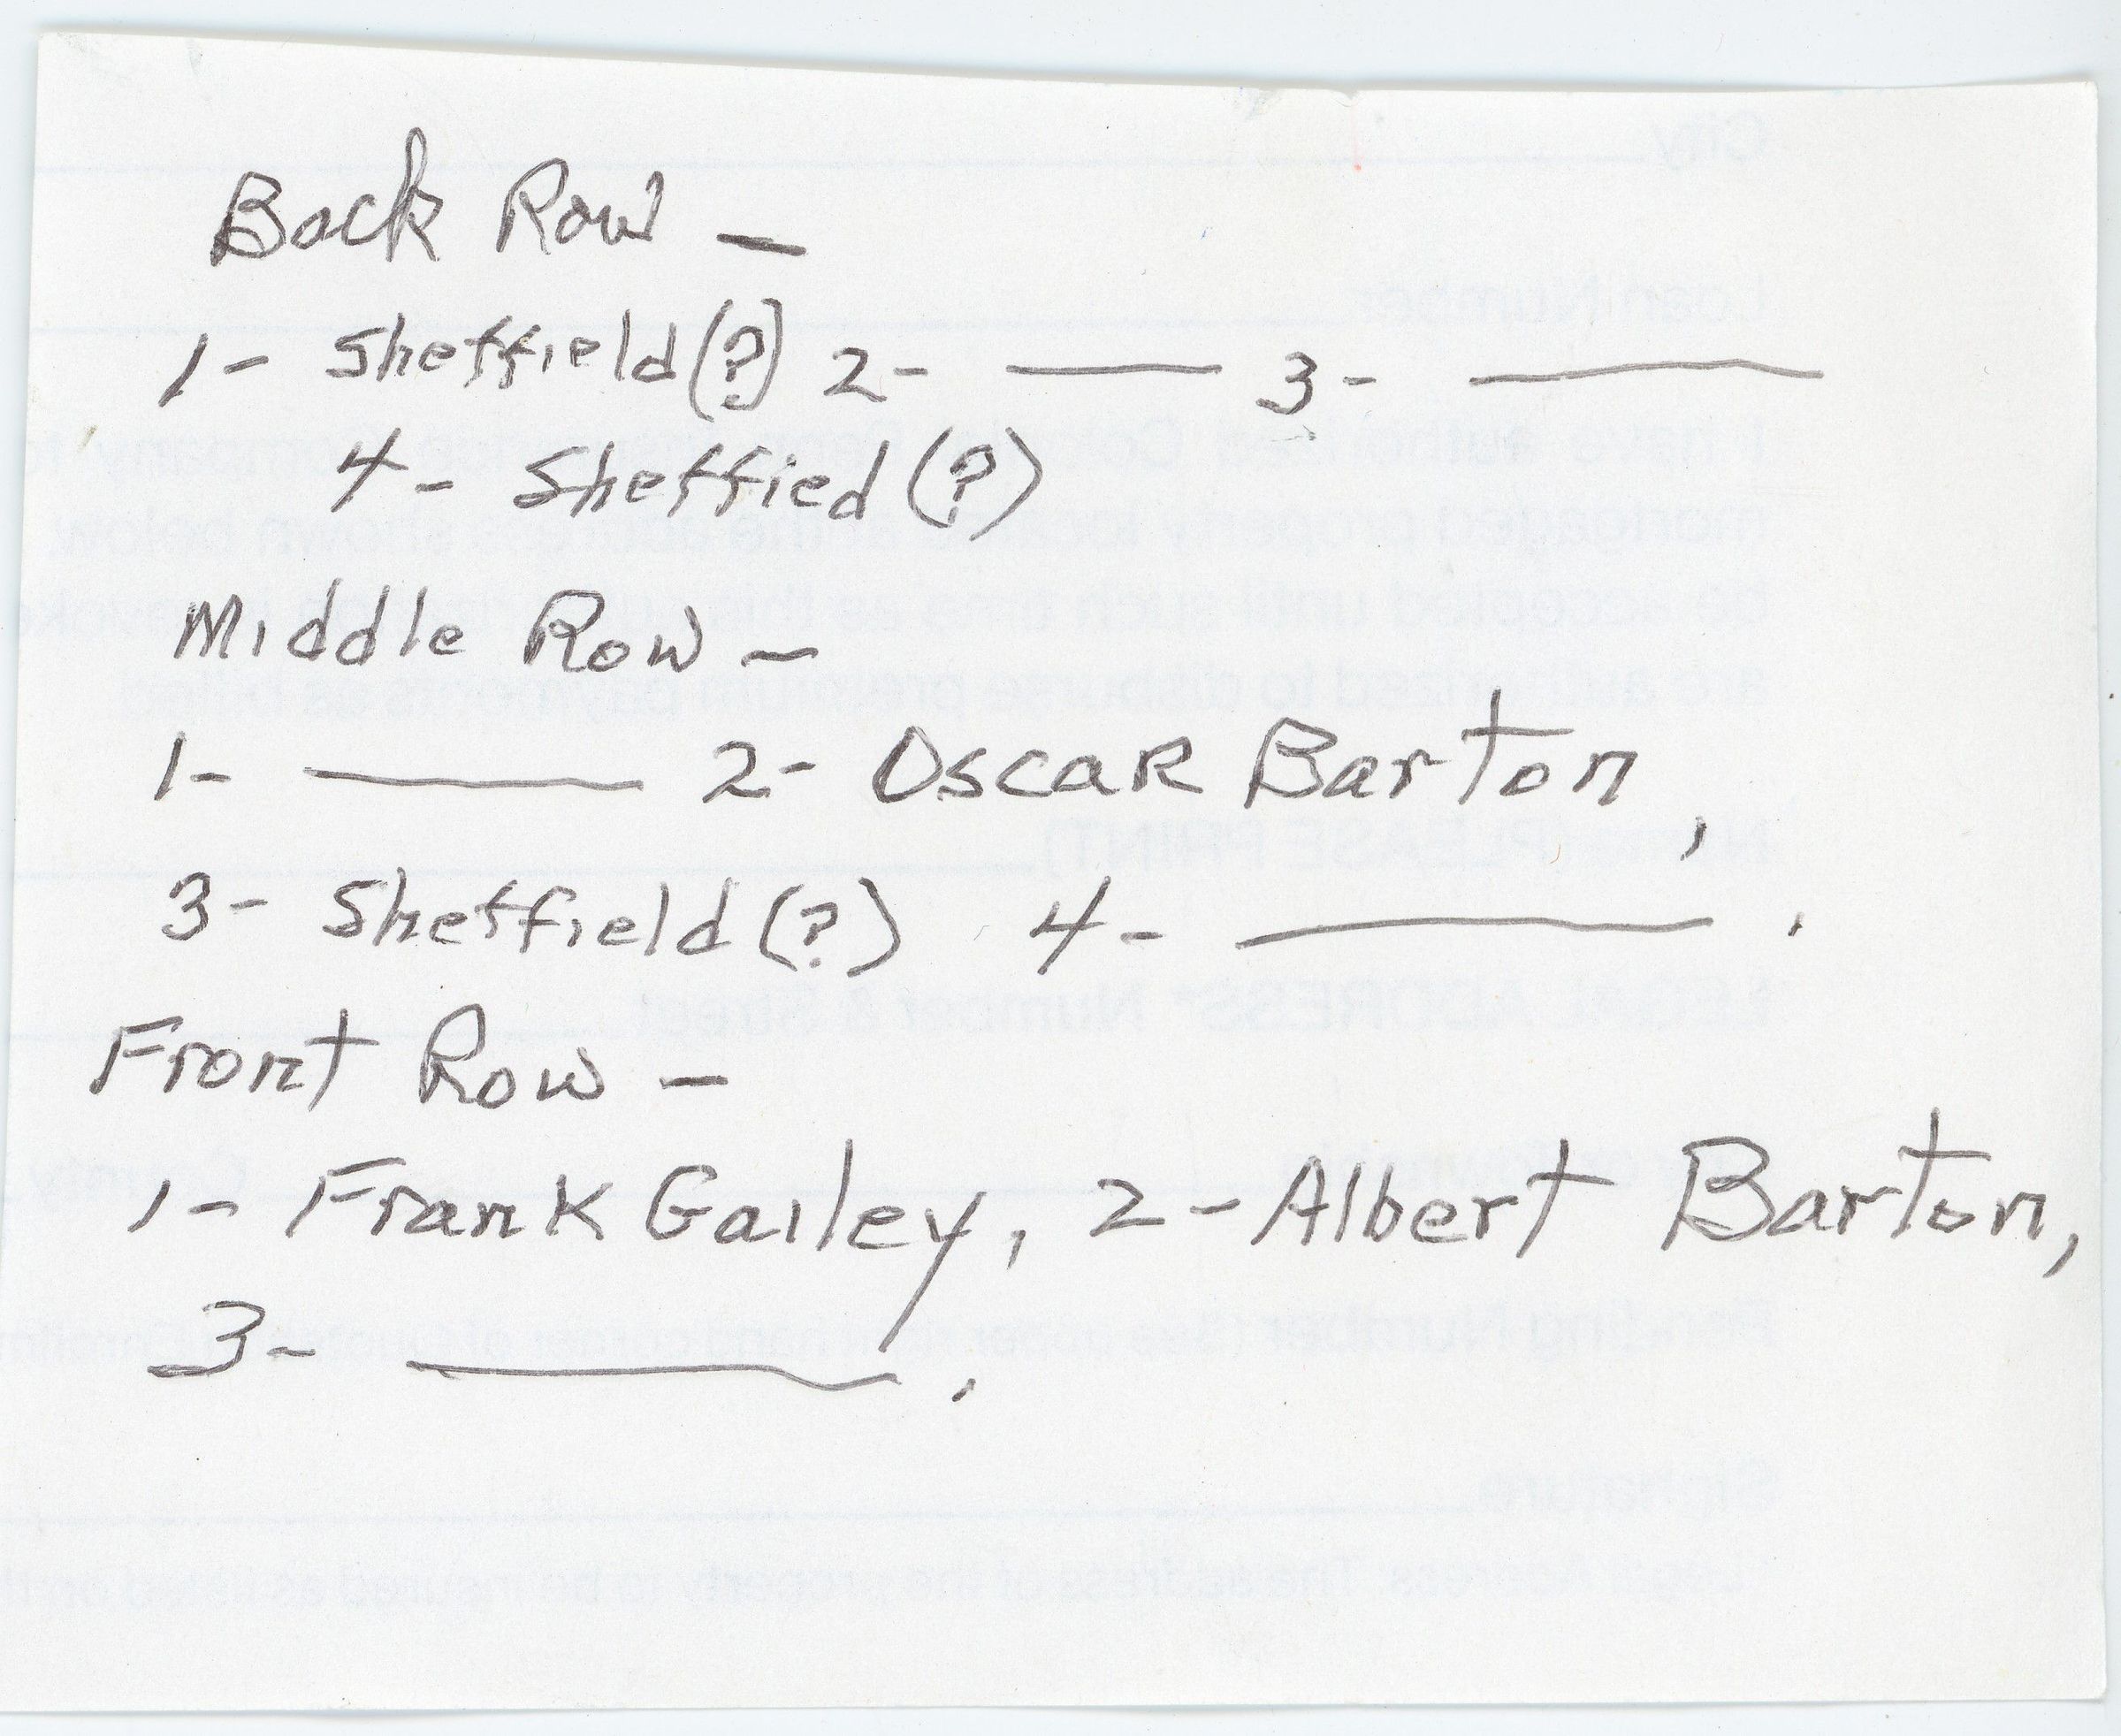 Back Row —
1- Sheffield(?) 2- ——— 3- ———
4- Sheffied (?)
Middle Row —
1- ——— 2- Oscar Barton,
3- Sheffield (?) 4- ———.
Front Row —
1- Frank Gailey, 2- Albert Barton,
3- ———.